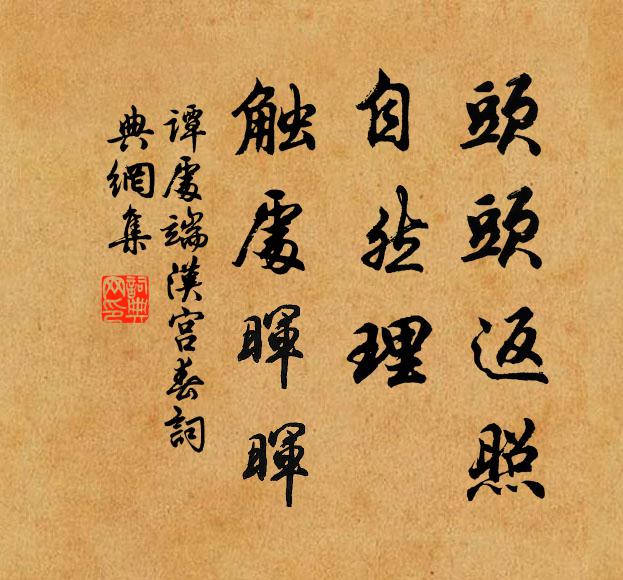 頭頭返照
自然理
觸處暉暉
譚處端漢宮春詞
典網集
詞典網印